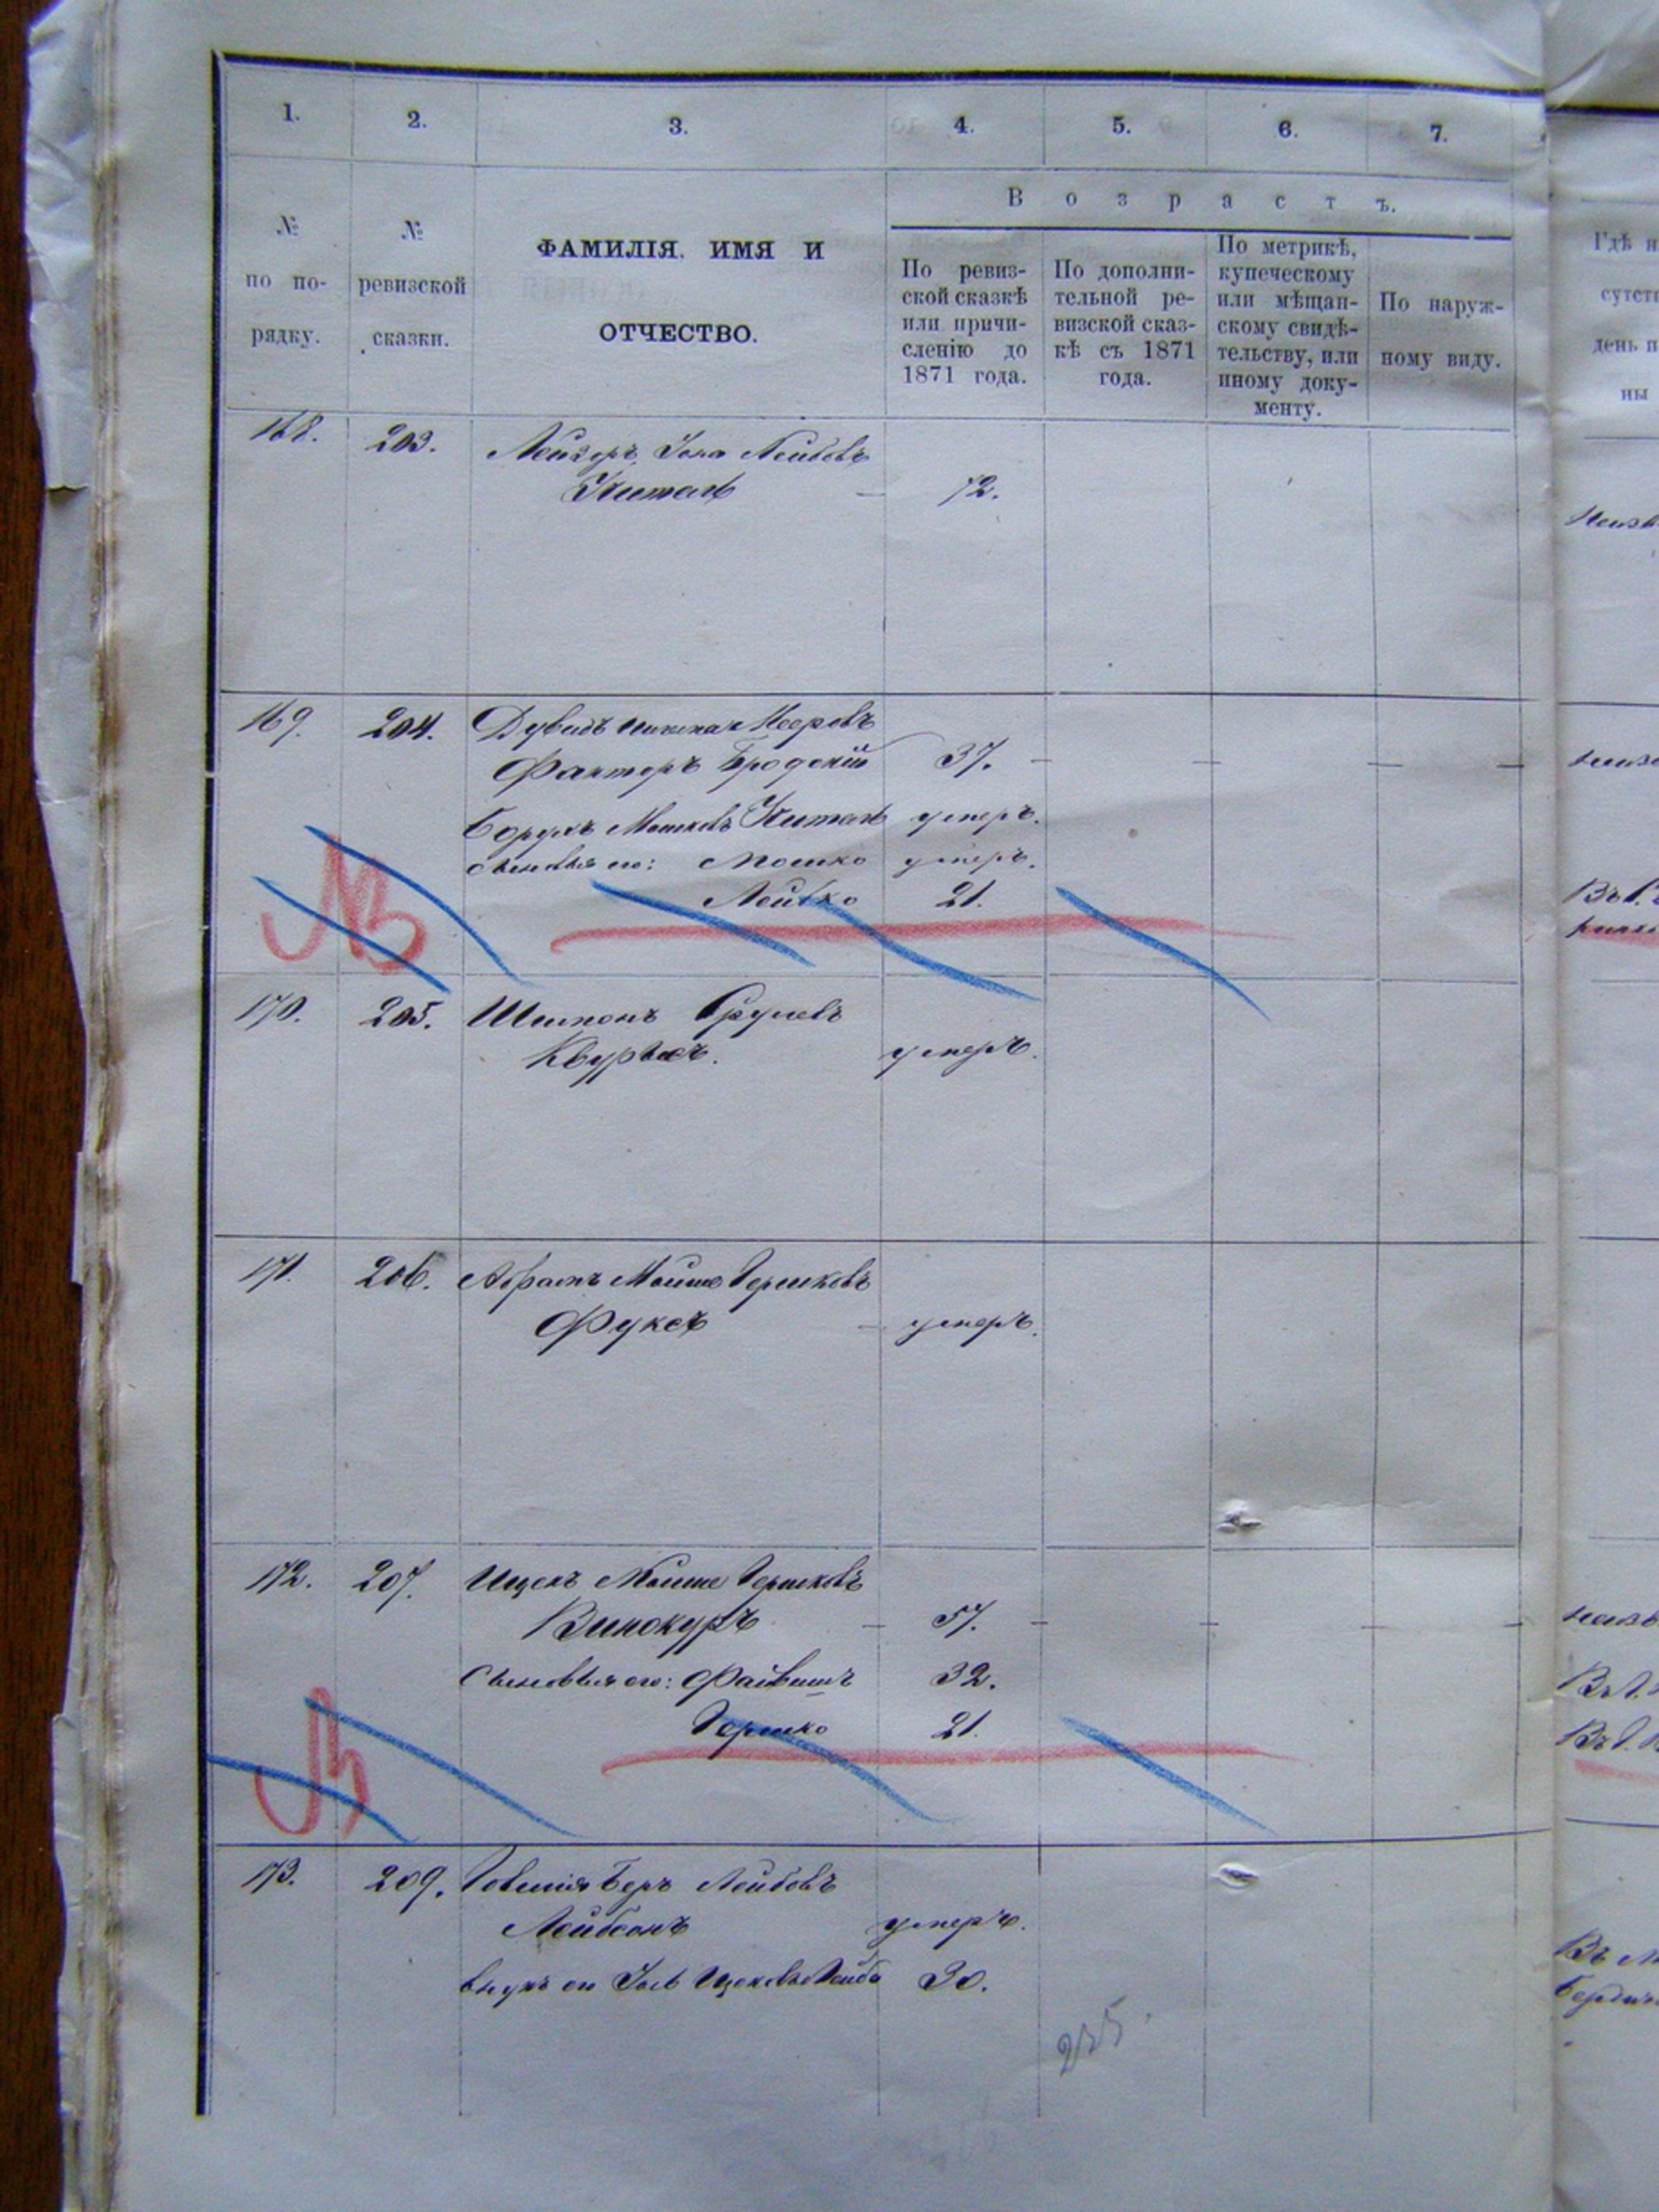 1. 2. 3. 4. 5. 6. 7.
№ по по-рядку.
№ ревизской сказки.
ФАМИЛІЯ, ИМЯ И
ОТЧЕСТВО.
Возрастъ.
По ревиз-
ской сказкѣ
или причи-
сленію до
1871 года.
По дополни-
тельной ре-
визской сказ-
кѣ съ 1871
года.
По метрикѣ,
купеческому
или мѣщан-
скому свидѣ-
тельству, или
иному доку-
менту.
По наруж-
ному виду.
168. 203. Лейзоръ Іона Лейбовъ
Киталь — 72.
169. 204. Дувидъ Мееровъ
Факторъ Бродскій 37. — — — —
Борухъ Мошковъ Киталь умеръ.
сыновья его: Мошко умеръ.
Лейбко 21.
170. 205. Шимонъ Срулевъ
умеръ.
171. 206. Абрамъ Мойше Гершковъ
Фуксъ — умеръ.
172. 207. Ицекъ Мойше Гершковъ
Винокуръ — 57. — — — —
Сыновья его: Файвишъ 32.
Гершко 21.
173. 209. Овшія Беръ Лейбовъ
Лейбсонъ умеръ.
внукъ его 30.
235.
Гдѣ н
сутст
день п
ны